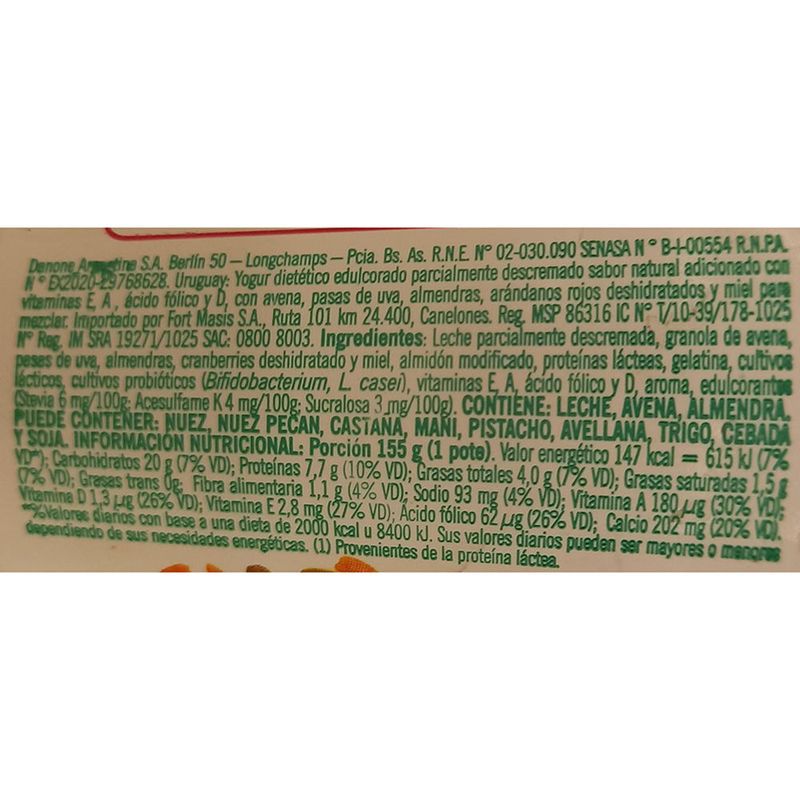 Danone Argentina S.A. Berlín 50 – Longchamps – Pcia. Bs. As. R.N.E. Nº 02-030.090 SENASA N º B-I-00554 R.N.P.A.
N º EX2020-29768628. Uruguay: Yogur dietético edulcorado parcialmente descremado sabor natural adicionado con
vitaminas E, A , ácido fólico y D, con avena, pasas de uva, almendras, arándanos rojos deshidratados y miel para
mezclar. Importado por Fort Masis S.A., Ruta 101 km 24.400, Canelones. Reg. MSP 86316 IC Nº T/10-39/178-1025
Nº Reg. IM SRA 19271/1025 SAC: 0800 8003. Ingredientes: Leche parcialmente descremada, granola de avena,
pasas de uva, almendras, cranberries deshidratado y miel, almidón modificado, proteínas lácteas, gelatina, cultivos
lácticos, cultivos probióticos (Bifidobacterium, L. casei), vitaminas E, A, ácido fólico y D, aroma, edulcorantes
(Stevia 6 mg/100g; Acesulfame K 4 mg/100g; Sucralosa 3 mg/100g). CONTIENE: LECHE, AVENA, ALMENDRA.
PUEDE CONTENER: NUEZ, NUEZ PECAN, CASTAÑA, MANI, PISTACHO, AVELLANA, TRIGO, CEBADA
Y SOJA. INFORMACIÓN NUTRICIONAL: Porción 155 g (1 pote). Valor energético 147 kcal = 615 kJ (7%
VD*); Carbohidratos 20 g (7% VD); Proteínas 7,7 g (10% VD); Grasas totales 4,0 g (7% VD); Grasas saturadas 1,5 g
(7% VD); Grasas trans 0g; Fibra alimentaria 1,1 g (4% VD); Sodio 93 mg (4% VD); Vitamina A 180 µg (30% VD);
Vitamina D 1,3 µg (26% VD); Vitamina E 2,8 mg (27% VD); Ácido fólico 62 µg (26% VD); Calcio 202 mg (20% VD).
*%Valores diarios con base a una dieta de 2000 kcal u 8400 kJ. Sus valores diarios pueden ser mayores o menores
dependiendo de sus necesidades energéticas. (1) Provenientes de la proteína láctea.